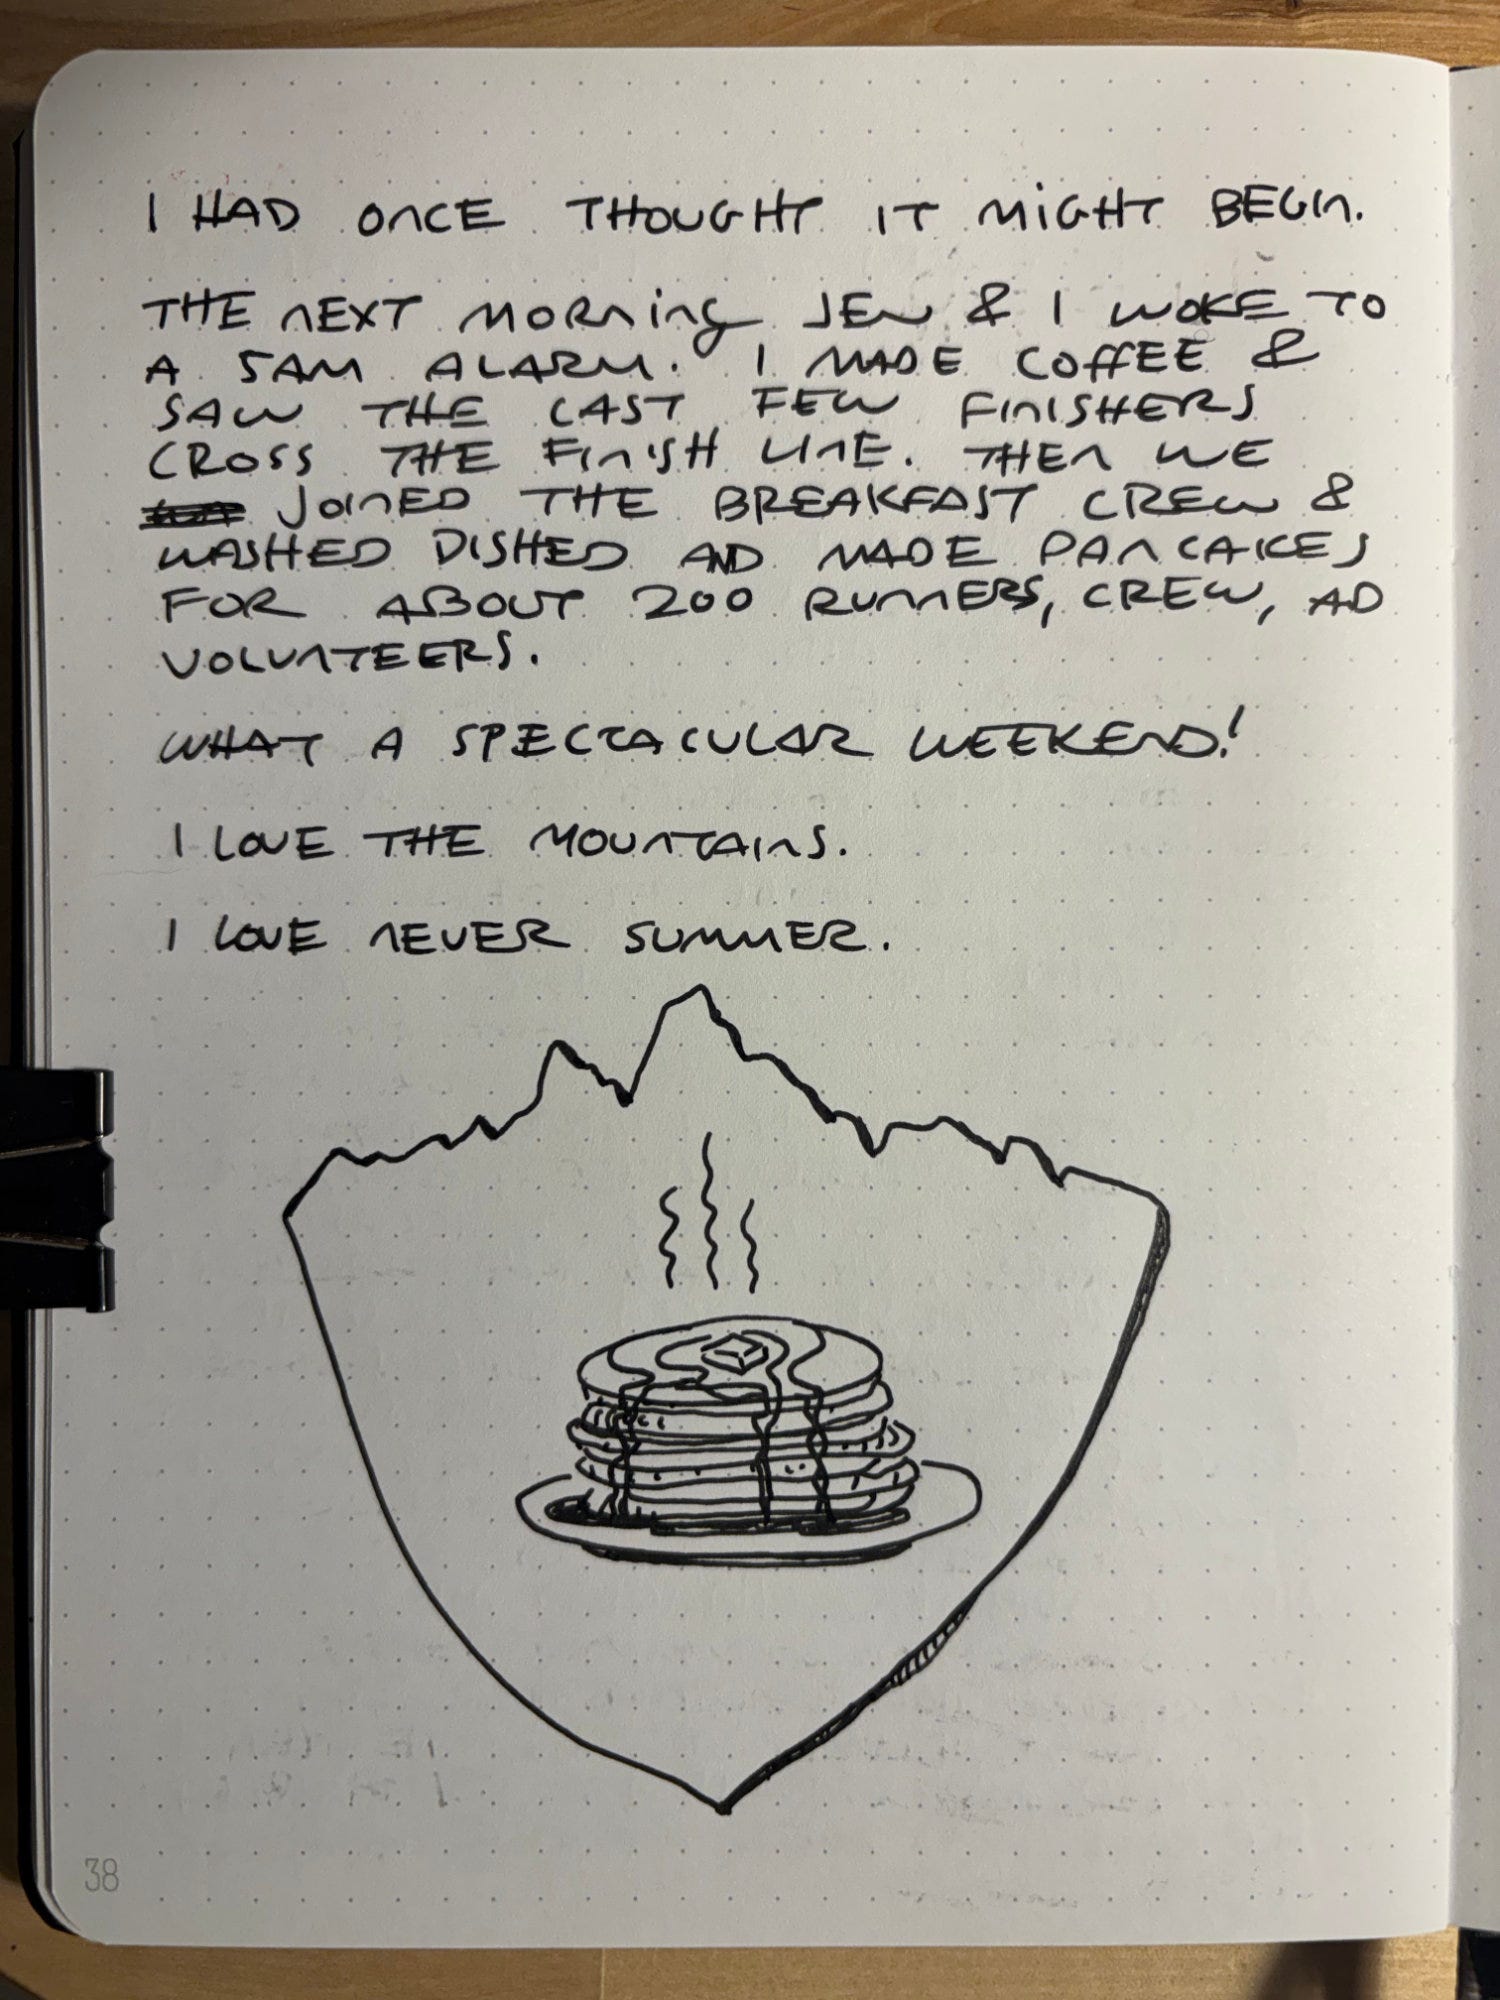 I HAD ONCE THOUGHT IT MIGHT BEGIN.
THE NEXT MORNING JEN & I WOKE TO
A 5AM ALARM. I MADE COFFEE &
SAW THE LAST FEW FINISHERS
CROSS THE FINISH LINE. THEN WE
JOINED THE BREAKFAST CREW &
WASHED DISHED AND MADE PANCAKES
FOR ABOUT 200 RUNNERS, CREW, AD
VOLUNTEERS.
WHAT A SPECTACULAR WEEKEND!
I LOVE THE MOUNTAINS.
I LOVE NEVER SUMMER.
38